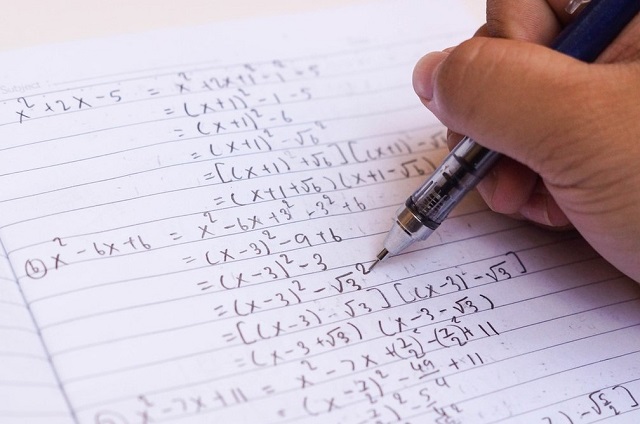 Subject
x² + 2x - 5 = x² + 2x + 1² - 1² - 5
= (x+1)² - 1 - 5
= (x+1)² - 6
= (x+1)² - √6²
= [(x+1) + √6][(x+1) - √
= (x+1+√6)(x+1-√6
(b) x² - 6x + 6 = x² - 6x + 3² - 3² + 6
= (x-3)² - 9 + 6
= (x-3)² - 3
= (x-3)² - √3²
= [(x-3) - √3][(x-3) - √3]
= (x-3+√3) (x-3-√3)
x² - 7x + 11 = x² - 7x + (7/2)² - (7/2)² + 11
= (x - 7/2)² - 49/4 + 11
7/2)² - 5/4
) - √5/2]